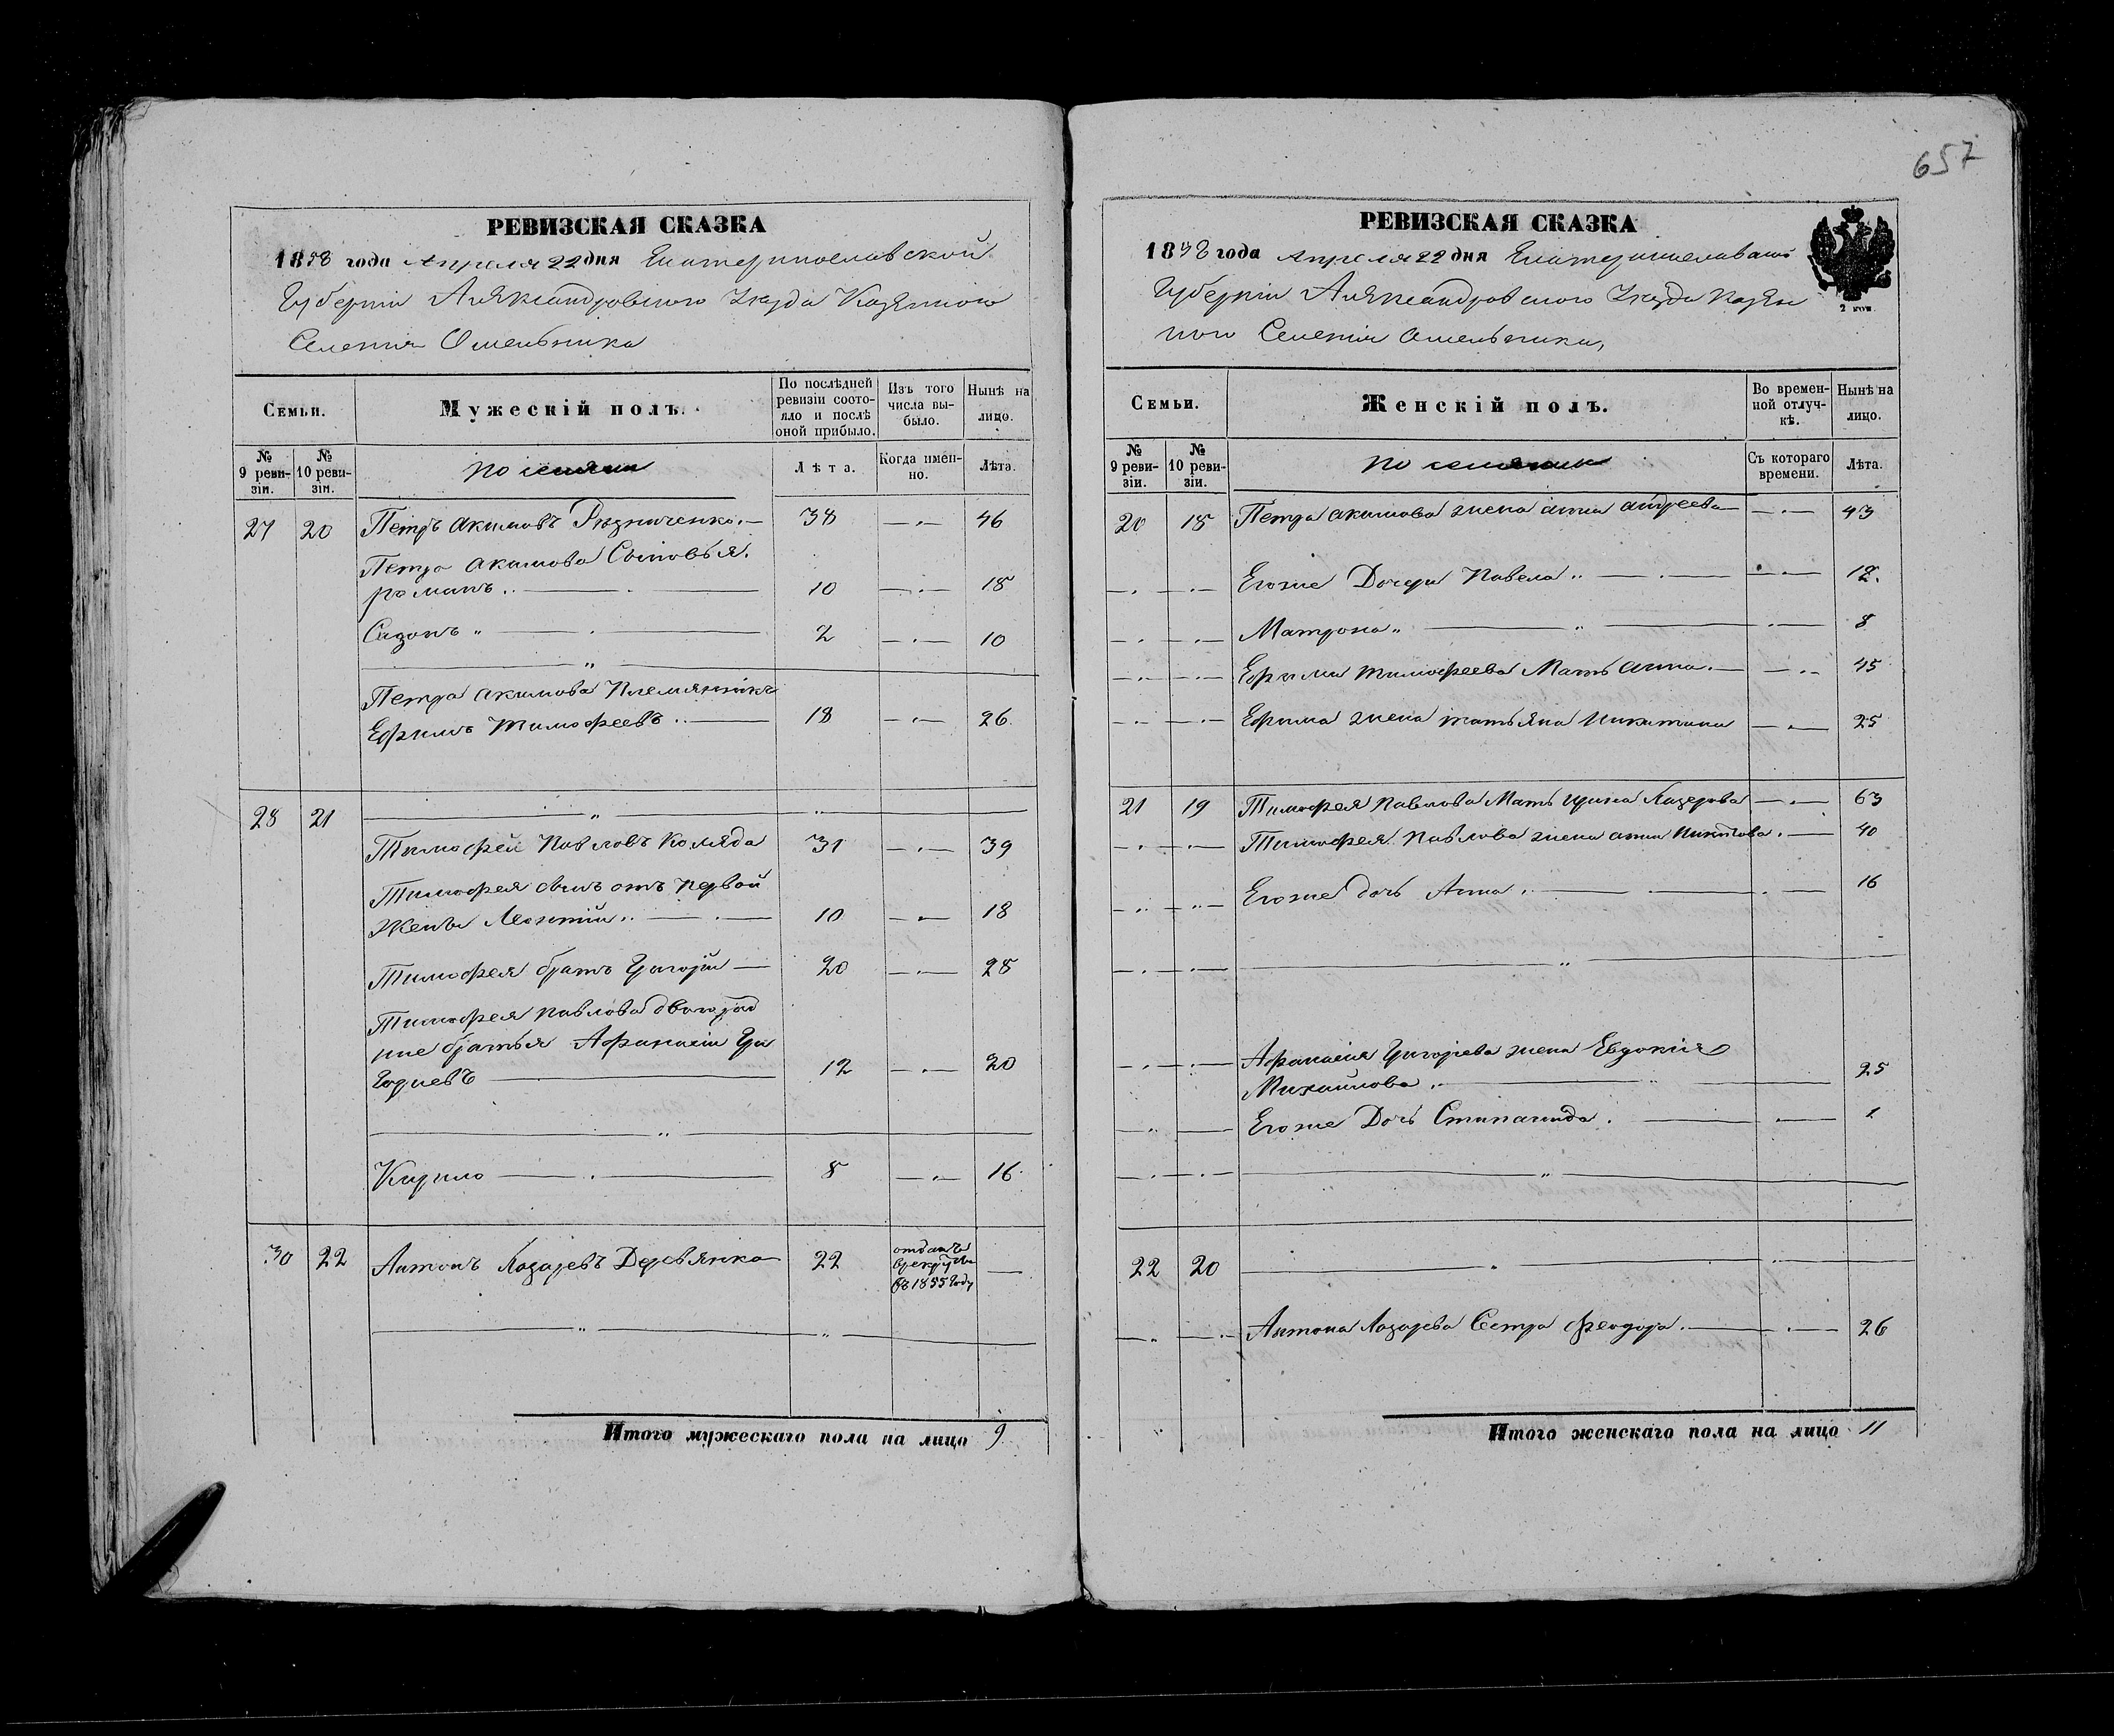 657
РЕВИЗСКАЯ СКАЗКА
1858 года Апреля 22 дня Екатеринославской
Губерніи Александровскаго Уезда Казенного
Селения Омельника
Семьи.
Мужескій полъ.
По послѣдней ревизіи состояло и послѣ оной прибыло.
Изъ того числа выбыло.
Нынѣ на лицо.
№ 9 ревизіи.
№ 10 ревизіи.
Лѣта.
Когда именно.
Лѣта.
27 20 Петръ Акимовъ Резниченко. — 38 — 46
Петра Акимова Сыновья.
Романъ 10 — 18
Сазонъ 2 — 10
Петра Акимова Племянникъ
Ефимъ Тимофеевъ 18 — 26
28 21
Тимофей Павловъ Коляда 31 — 39
Тимофея сынъ отъ первой
жены Леонтий 10 — 18
Тимофея братъ Григорий — 20 — 28
Тимофея Павлова двоюрод
ные братья Афанасий Гри
горьевъ 12 — 20
Кирило 8 — 16
30 22 Антонъ Лазаревъ Деревянко 22 отданъ в рекруты в 1855 году —
Итого мужескаго пола на лицо 9
РЕВИЗСКАЯ СКАЗКА
1858 года Апреля 22 дня Екатеринославской
Губерніи Александровского Уезда Казен
ного Селения Омельника,
2 коп.
Семьи.
Женскій полъ.
Во временной отлучкѣ.
Нынѣ на лицо.
№ 9 ревизіи.
№ 10 ревизіи.
Съ котораго времени.
Лѣта.
20 18 Петра Акимова жена Анна Андреева — 43
Егоже Дочери Павела 12.
Матрона 8
Ефима Тимофеева Мать Анна. — 45
Ефима жена Татьяна Никитина — 25
21 19 Тимофея Павлова Мать Ирина Лазарева — 63
Тимофея Павлова жена Анна 40
Егоже дочь Анна 16
Афанасия Григорьева жена Евдокия
Михайлова 25
Егоже Дочь Степанида. 1
22 20
Антона Лазарева Сестра Феодора. 26
Итого женскаго пола на лицо 11